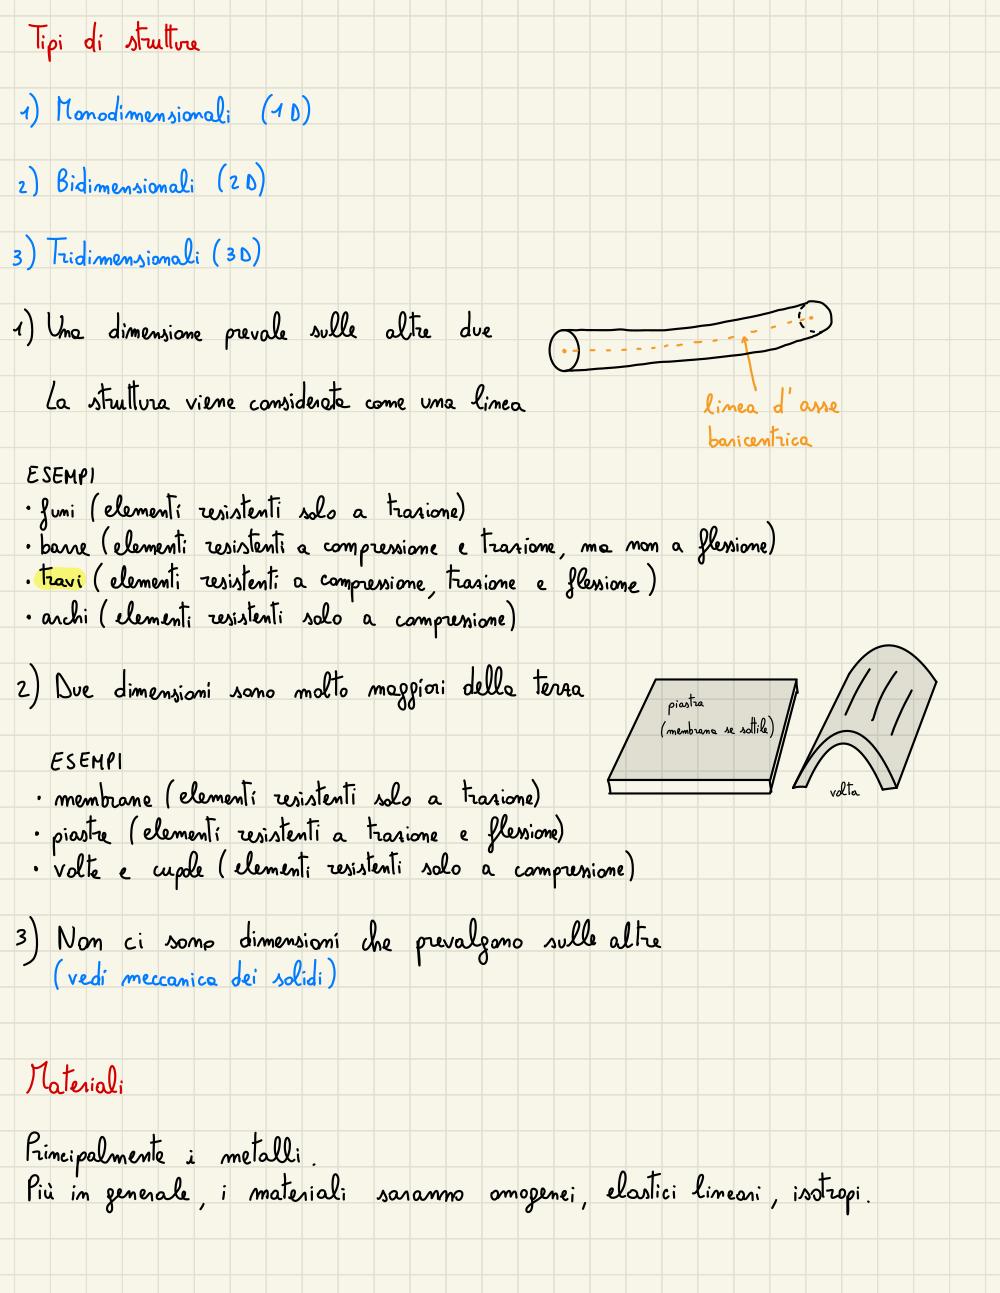 Tipi di strutture
1) Monodimensionali (1D)
2) Bidimensionali (2D)
3) Tridimensionali (3D)
1) Una dimensione prevale sulle altre due
La struttura viene considerata come una linea
linea d'asse
baricentrica
ESEMPI
• funi (elementi resistenti solo a trazione)
• barre (elementi resistenti a compressione e trazione, ma non a flessione)
• travi (elementi resistenti a compressione, trazione e flessione)
• archi (elementi resistenti solo a compressione)
2) Due dimensioni sono molto maggiori della terza
piastra
(membrana se sottile)
volta
ESEMPI
• membrane (elementi resistenti solo a trazione)
• piastre (elementi resistenti a trazione e flessione)
• volte e cupole (elementi resistenti solo a compressione)
3) Non ci sono dimensioni che prevalgono sulle altre
(vedi meccanica dei solidi)
Materiali
Principalmente i metalli.
Più in generale, i materiali saranno omogenei, elastici lineari, isotropi.